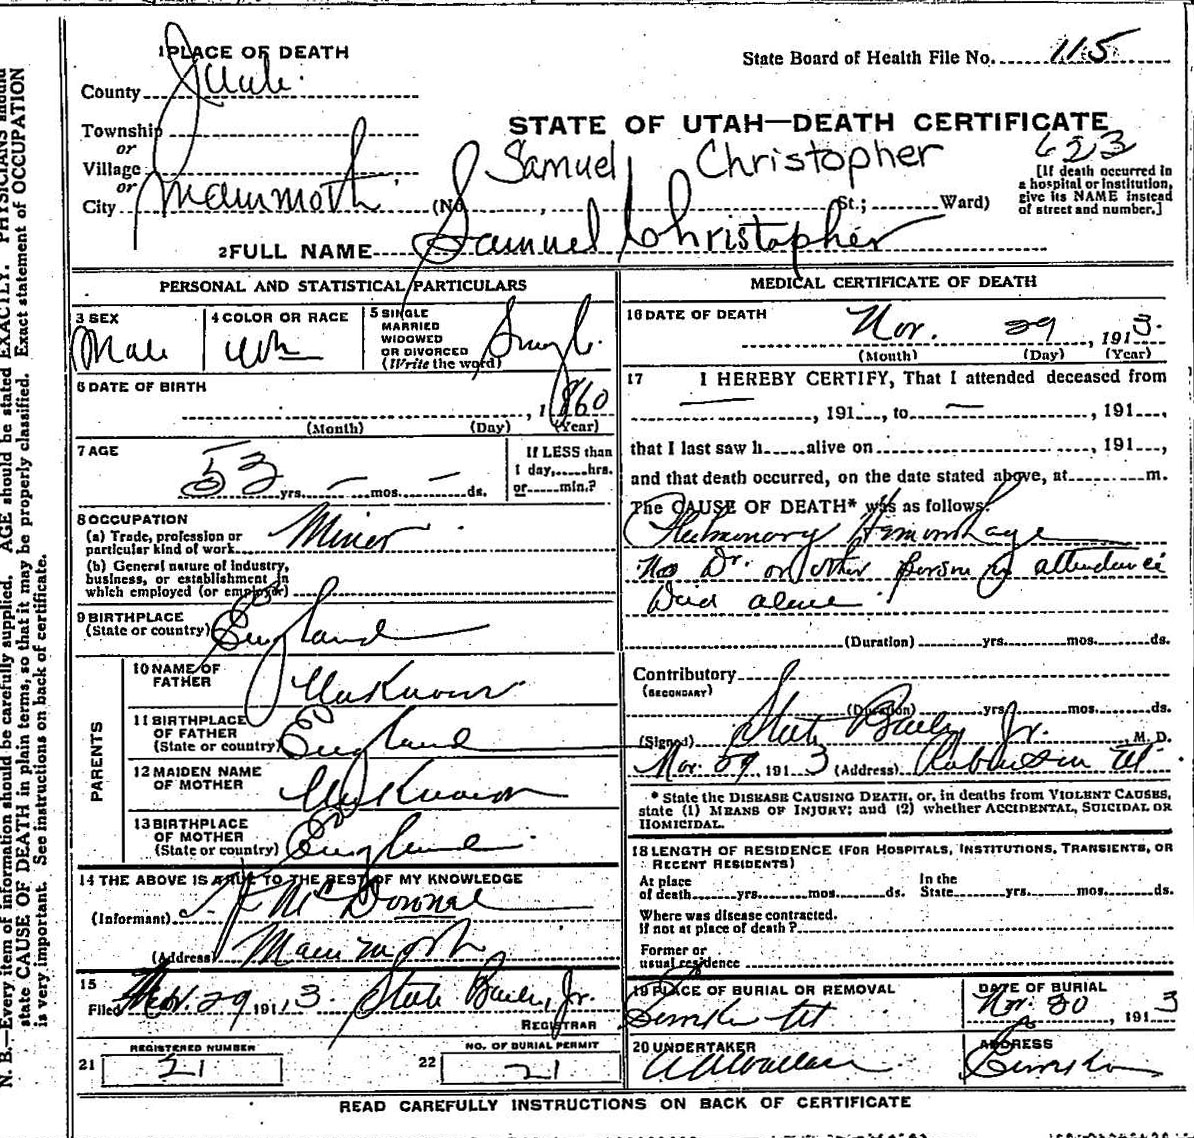 1 PLACE OF DEATH
State Board of Health File No. 115
County Juab.
STATE OF UTAH—DEATH CERTIFICATE
Township
or
Village
or
City Mammoth
Samuel Christopher
623
(No , St.; Ward)
[If death occurred in
a hospital or institution,
give its NAME instead
of street and number.]
2 FULL NAME Samuel Christopher
PERSONAL AND STATISTICAL PARTICULARS
3 SEX
Male
4 COLOR OR RACE
Wh
5 SINGLE
MARRIED
WIDOWED
OR DIVORCED
(Write the word)
Single
6 DATE OF BIRTH
, 1860
(Month) (Day) (Year)
7 AGE
53 yrs. — mos. — ds.
If LESS than
1 day, hrs.
or min.?
8 OCCUPATION
(a) Trade, profession or
particular kind of work Miner
(b) General nature of industry,
business, or establishment in
which employed (or employer)
9 BIRTHPLACE
(State or country) England
PARENTS
10 NAME OF
FATHER Unknown
11 BIRTHPLACE
OF FATHER
(State or country) England
12 MAIDEN NAME
OF MOTHER Unknown
13 BIRTHPLACE
OF MOTHER
(State or country) England
14 THE ABOVE IS TRUE TO THE BEST OF MY KNOWLEDGE
(Informant) McDonal
(Address) Mammoth
15
Filed Nov. 29 1913. Steele Bailey, Jr.
REGISTRAR
REGISTERED NUMBER
21 21
NO. OF BURIAL PERMIT
22 21
MEDICAL CERTIFICATE OF DEATH
16 DATE OF DEATH
Nov. 29, 1913.
(Month) (Day) (Year)
17 I HEREBY CERTIFY, That I attended deceased from
—, 191 , to —, 191 ,
that I last saw h alive on , 191 ,
and that death occurred, on the date stated above, at m.
The CAUSE OF DEATH* was as follows:
Pulmonary Hemorrhage
No Dr. or other person in attendance
Died alone
(Duration) yrs. mos. ds.
Contributory
(SECONDARY)
(Duration) yrs. mos. ds.
(Signed) Steele Bailey Jr. , M. D.
Nov. 29, 1913 (Address) Robinson Ut
* State the DISEASE CAUSING DEATH, or, in deaths from VIOLENT CAUSES,
state (1) MEANS OF INJURY; and (2) whether ACCIDENTAL, SUICIDAL OR
HOMICIDAL.
18 LENGTH OF RESIDENCE (FOR HOSPITALS, INSTITUTIONS, TRANSIENTS, OR
RECENT RESIDENTS)
At place
of death yrs. mos. ds.
In the
State yrs. mos. ds.
Where was disease contracted.
if not at place of death?
Former or
usual residence
19 PLACE OF BURIAL OR REMOVAL
Eureka Ut
DATE OF BURIAL
Nov. 30, 1913
20 UNDERTAKER
ADDRESS
Eureka
READ CAREFULLY INSTRUCTIONS ON BACK OF CERTIFICATE
N. B.—Every item of information should be carefully supplied. AGE should be stated EXACTLY. PHYSICIANS should
state CAUSE OF DEATH in plain terms, so that it may be properly classified. Exact statement of OCCUPATION
is very important. See instructions on back of certificate.